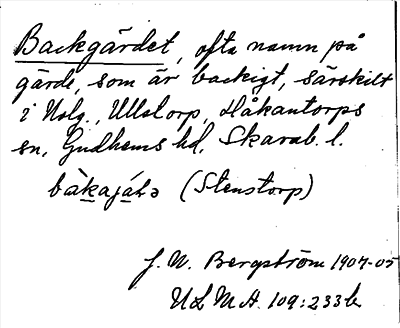 Backgärdet, ofta namn på
gärde, som är backigt, särskilt
i Utvg., Ullstorp, Håkantorps
sn, Gudhems hd, Skarab. l.
bàkajáɫə (Stenstorp)
J. N. Bergström 1904-05
ULMA. 109:233 b